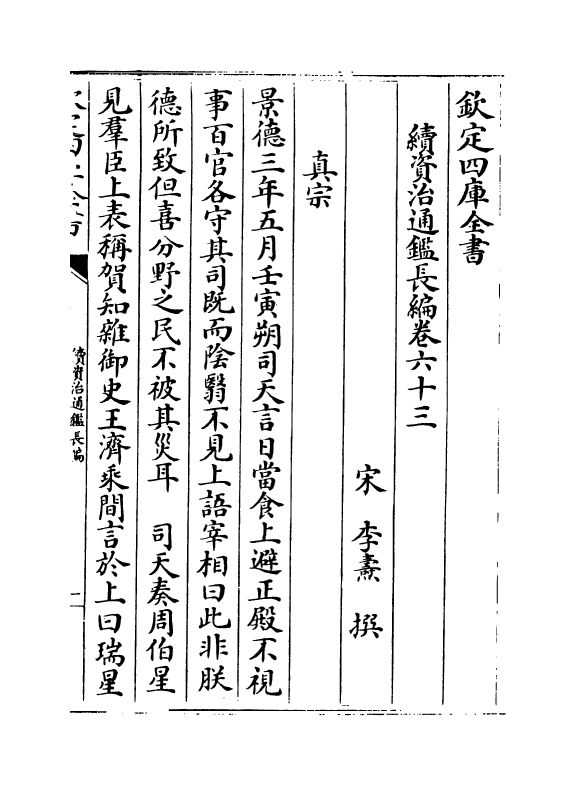 欽定四庫全書
續資治通鑑長編卷六十三
宋 李燾 撰
真宗
景德三年五月壬寅朔司天言日當食上避正殿不視
事百官各守其司既而陰翳不見上語宰相曰此非朕
德所致但喜分野之民不被其災耳 司天奏周伯星
見羣臣上表稱賀知雜御史王濟乘間言於上曰瑞星
續資治通鑑長編
一